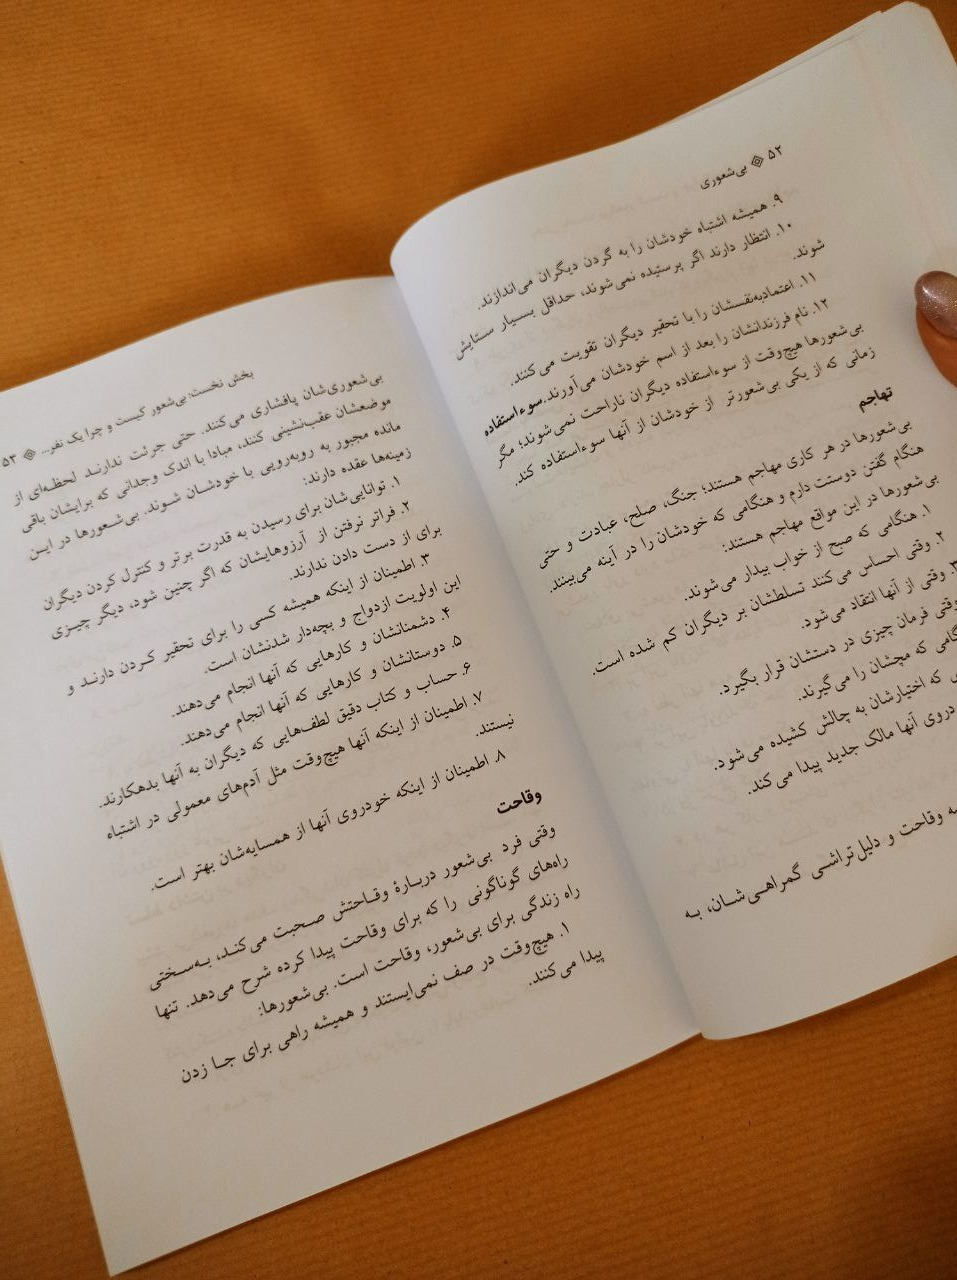 ۵۲ ※ بی‌شعوری
۹. همیشه اشتباه خودشان را به گردن دیگران می‌اندازند.
۱۰. انتظار دارند اگر پرستیده نمی‌شوند، حداقل بسیار ستایش
شوند.
۱۱. اعتمادبه‌نفسشان را با تحقیر دیگران تقویت می‌کنند.
۱۲. نام فرزندانشان را بعد از اسم خودشان می‌آورند.سوءاستفاده
بی‌شعورها هیچ‌وقت از سوءاستفاده دیگران ناراحت نمی‌شوند؛ مگر
زمانی که از یکی بی‌شعورتر از خودشان از آنها سوءاستفاده کند.
تهاجم
بی‌شعورها در هر کاری مهاجم هستند؛ جنگ، صلح، عبادت و حتی
هنگام گفتن دوستت دارم و هنگامی که خودشان را در آینه می‌بینند.
بی‌شعورها در این مواقع مهاجم هستند:
۱. هنگامی که صبح از خواب بیدار می‌شوند.
۲. وقتی احساس می‌کنند تسلطشان بر دیگران کم شده است.
۳. وقتی از آنها انتقاد می‌شود.
وقتی فرمان چیزی در دستشان قرار بگیرد.
که مچشان را می‌گیرند.
که اختیارشان به چالش کشیده می‌شود.
آنها مالک جدید پیدا می‌کند.
وقاحت و دلیل‌تراشی گمراهی‌شان، به
بخش نخست: بی‌شعور کیست و چرا یک نفر... ※ ۵۳
بی‌شعوری‌شان پافشاری می‌کنند. حتی جرئت ندارند لحظه‌ای از
موضعشان عقب‌نشینی کنند، مبادا با اندک وجدانی که برایشان باقی
مانده مجبور به روبه‌رویی با خودشان شوند. بی‌شعورها در این
زمینه‌ها عقده دارند:
۱. توانایی‌شان برای رسیدن به قدرت برتر و کنترل کردن دیگران
۲. فراتر نرفتن از آرزوهایشان که اگر چنین شود، دیگر چیزی
برای از دست دادن ندارند.
۳. اطمینان از اینکه همیشه کسی را برای تحقیر کردن دارند و
این اولویت ازدواج و بچه‌دار شدنشان است.
۴. دشمنانشان و کارهایی که آنها انجام می‌دهند.
۵. دوستانشان و کارهایی که آنها انجام می‌دهند.
۶. حساب و کتاب دقیق لطف‌هایی که دیگران به آنها بدهکارند.
۷. اطمینان از اینکه آنها هیچ‌وقت مثل آدم‌های معمولی در اشتباه
نیستند.
۸. اطمینان از اینکه خودروی آنها از همسایه‌شان بهتر است.
وقاحت
وقتی فرد بی‌شعور دربارهٔ وقاحتش صحبت می‌کند، به‌سختی
راه‌های گوناگونی را که برای وقاحت پیدا کرده شرح می‌دهد. تنها
راه زندگی برای بی‌شعور، وقاحت است. بی‌شعورها:
۱. هیچ‌وقت در صف نمی‌ایستند و همیشه راهی برای جا زدن
پیدا می‌کنند.